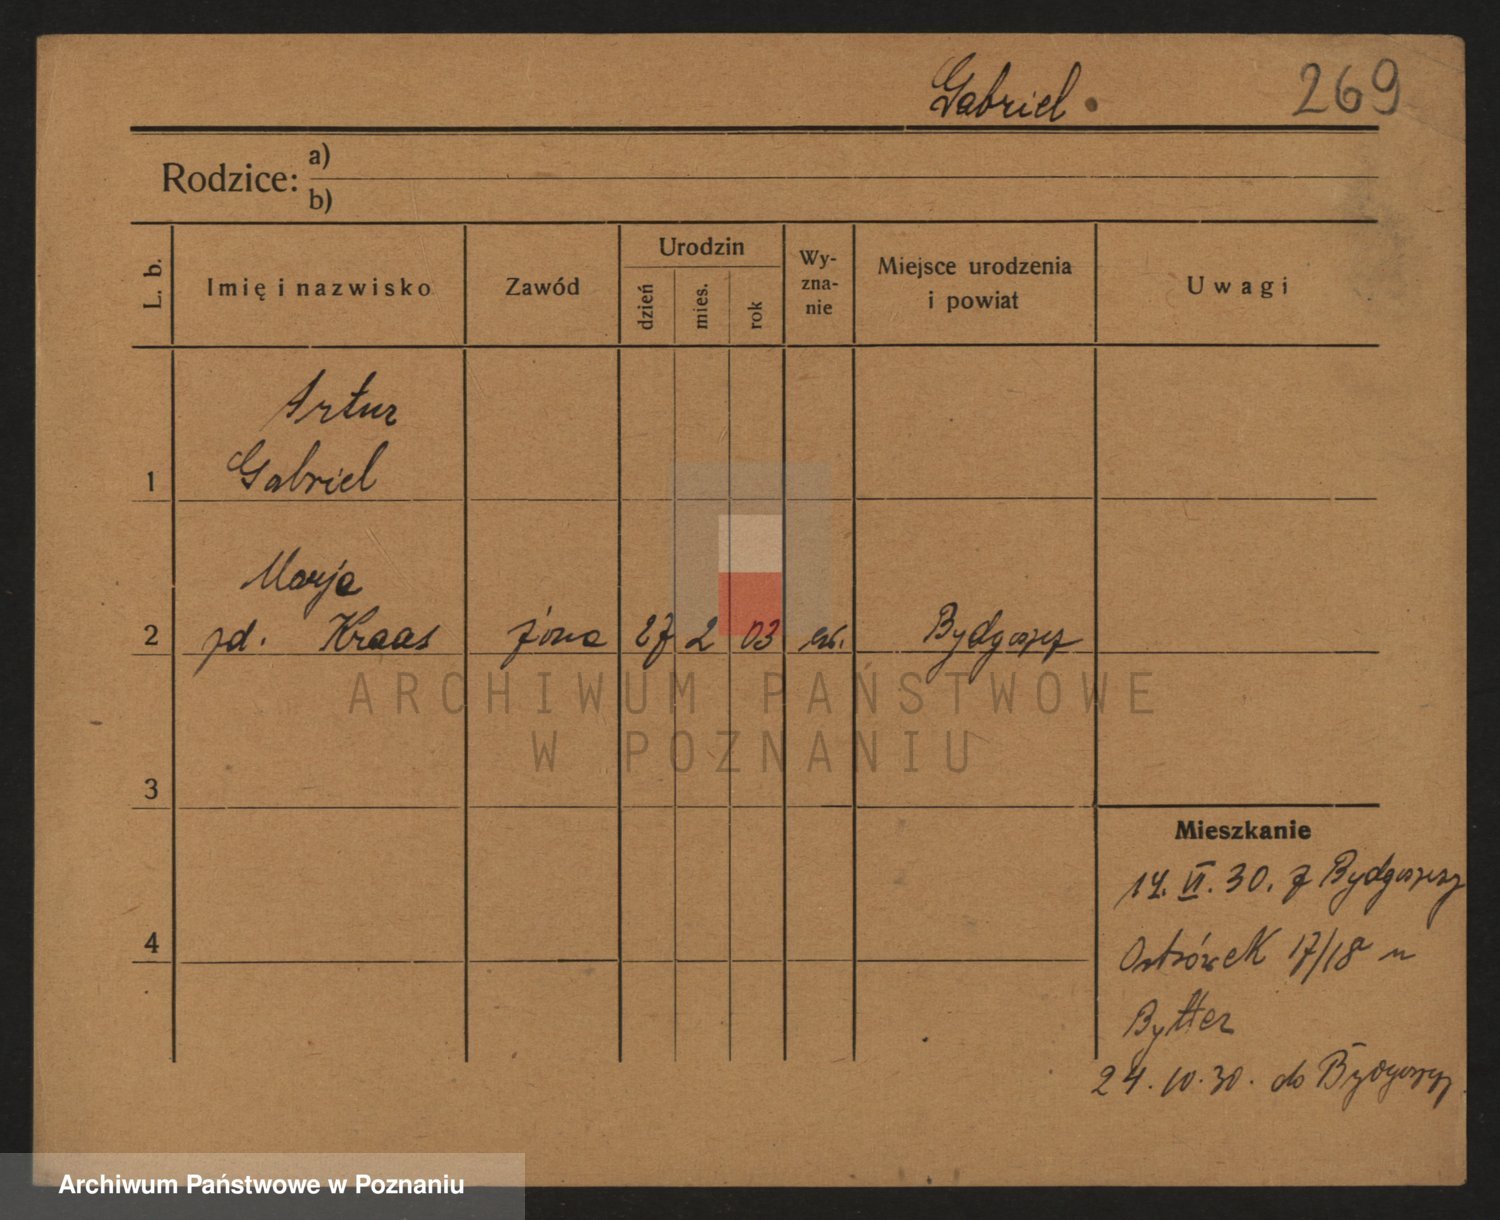 Gabriel
269
Rodzice: a)
b)
L. b.
Imię i nazwisko
Zawód
Urodzin
dzień
mies.
rok
Wy-
zna-
nie
Miejsce urodzenia
i powiat
Uwagi
Artur
1 Gabriel
Marja
2 zd. Kraas żona 27 2 03 Bydgoszcz
3
4
Mieszkanie
14. VI. 30. z Bydgoszczy
Ostrówek 17/18a u
Bytter
24. 10. 30. do Bydgoszcz
ARCHIWUM PAŃSTWOWE
W POZNANIU
Archiwum Państwowe w Poznaniu